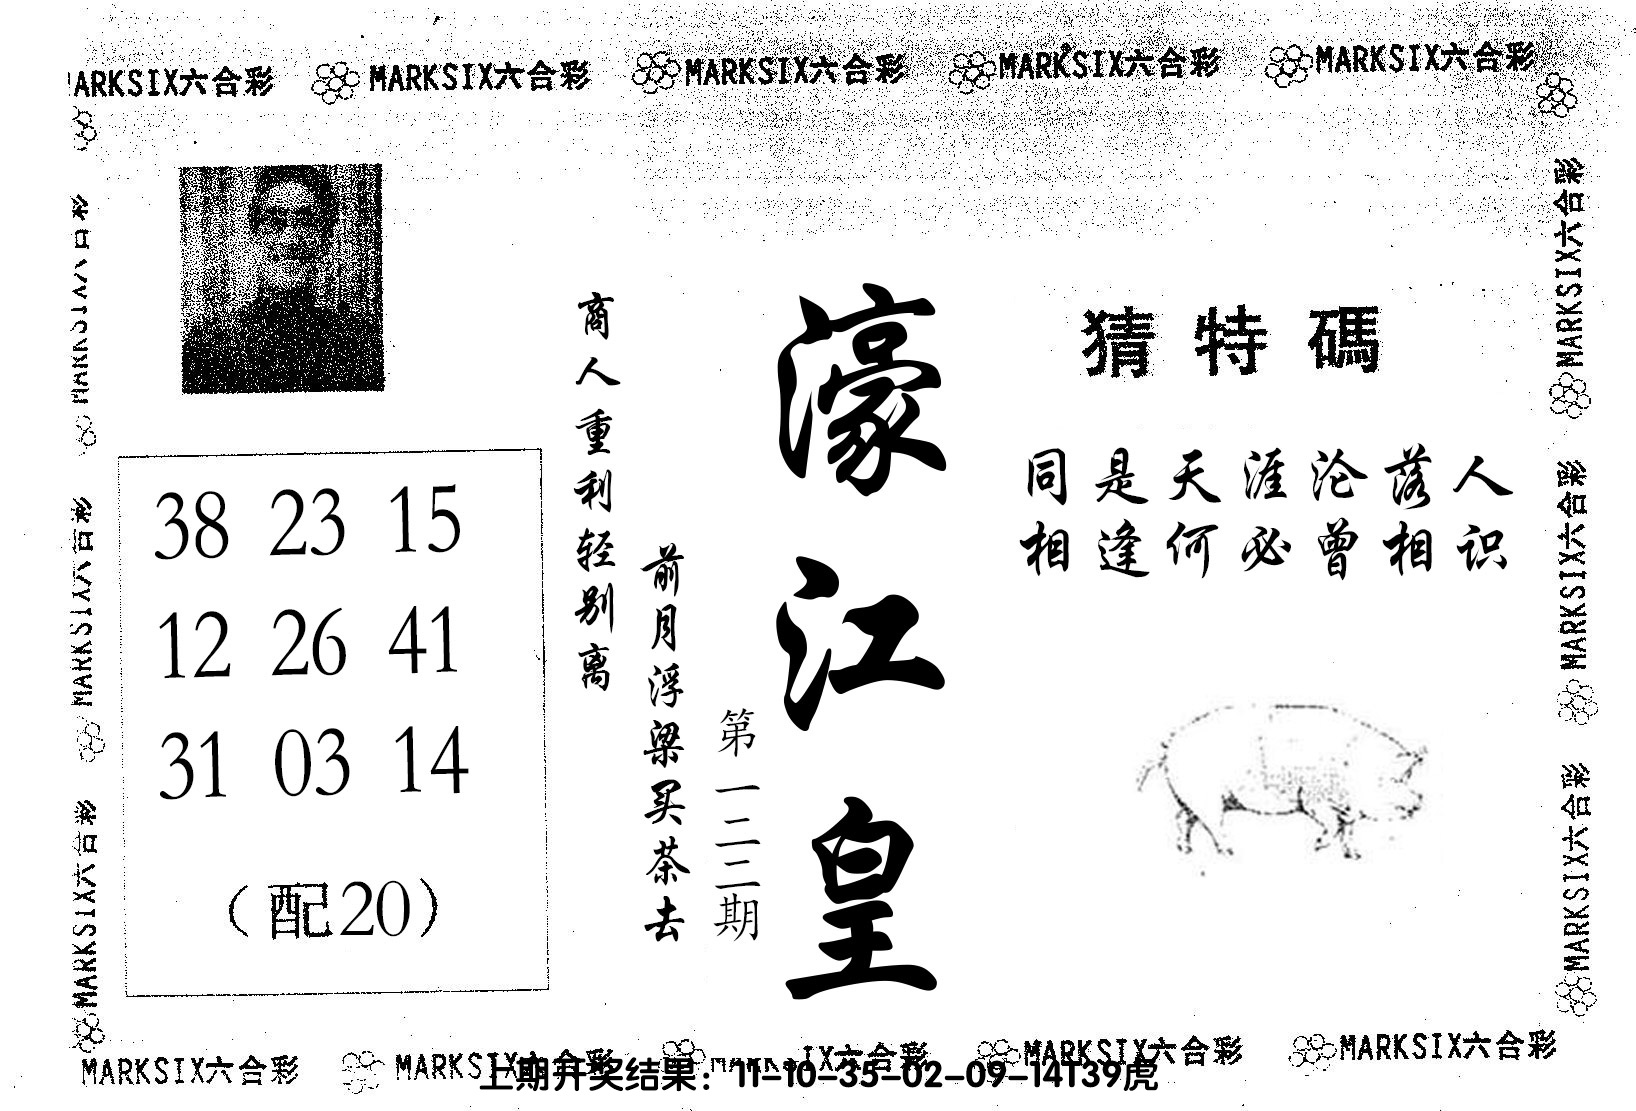 MARKSIX六合彩 MARKSIX六合彩 MARKSIX六合彩 MARKSIX六合彩 MARKSIX六合彩
猜特碼
同是天涯沦落人
相逢何必曾相识
濠江皇
第一二三期
商人重利轻别离
前月浮梁买茶去
38 23 15
12 26 41
31 03 14
（配20）
MARKSIX六合彩
MARKSIX六合彩
MARKSIX六合彩
MARKSIX六合彩
MARKSIX六合彩
MARKSIX六合彩
MARKSIX六合彩 MARKSIX六合彩 MARKSIX六合彩 MARKSIX六合彩 MARKSIX六合彩
上期开奖结果：11-10-35-02-09-14T39虎